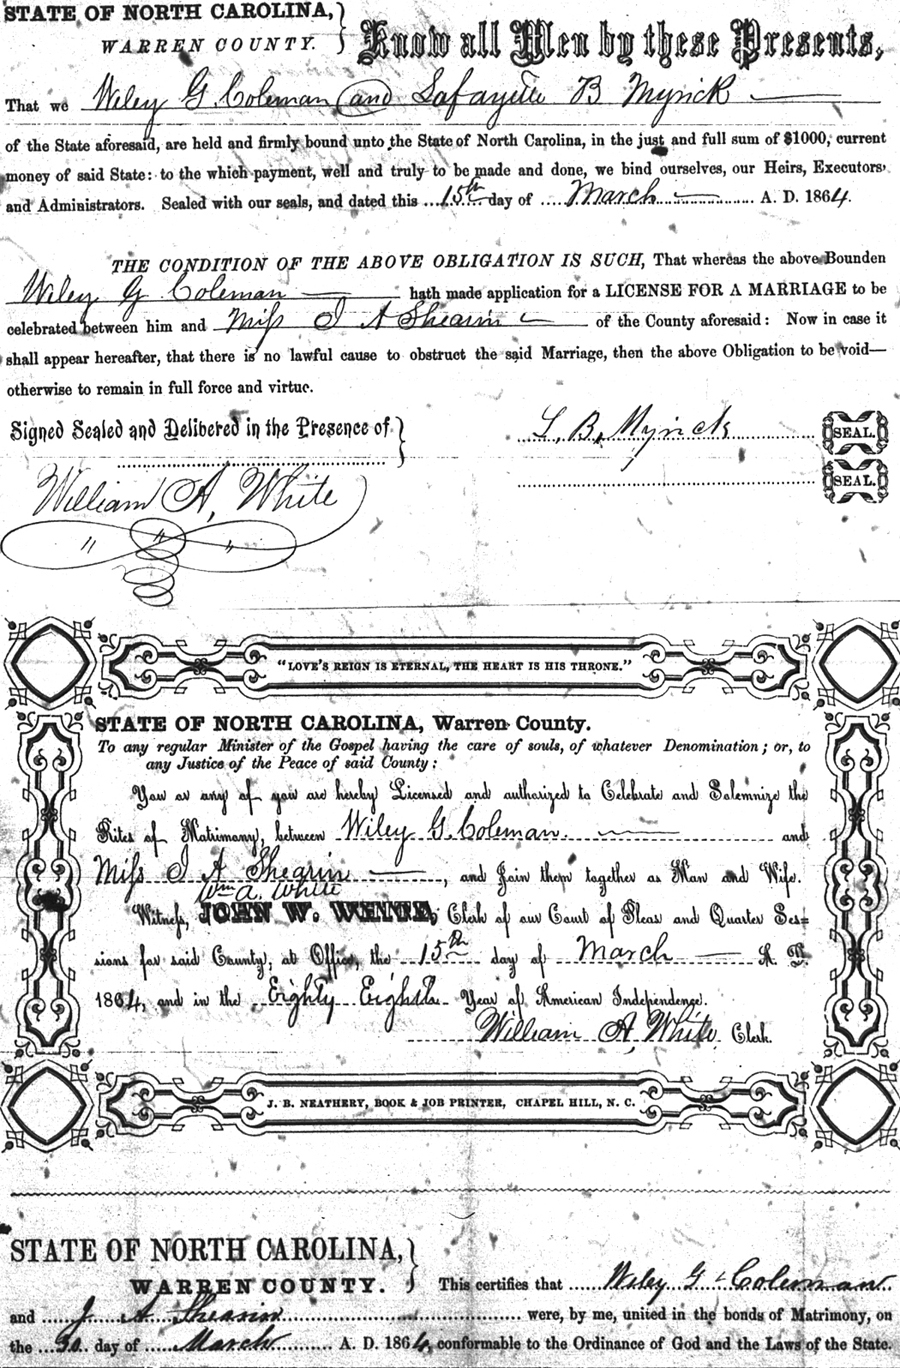 STATE OF NORTH CAROLINA,
WARREN COUNTY.
Know all Men by these Presents,
That we Wiley G Coleman and Lafayette B Myrick
of the State aforesaid, are held and firmly bound unto the State of North Carolina, in the just and full sum of $1000, current
money of said State: to the which payment, well and truly to be made and done, we bind ourselves, our Heirs, Executors
and Administrators. Sealed with our seals, and dated this 15th day of March A. D. 1864.
THE CONDITION OF THE ABOVE OBLIGATION IS SUCH, That whereas the above Bounden
Wiley G Coleman hath made application for a LICENSE FOR A MARRIAGE to be
celebrated between him and Miss J A Shearin of the County aforesaid: Now in case it
shall appear hereafter, that there is no lawful cause to obstruct the said Marriage, then the above Obligation to be void—
otherwise to remain in full force and virtue.
Signed Sealed and Delibered in the Presence of
L. B. Myrick SEAL.
SEAL.
William A. White
"LOVE'S REIGN IS ETERNAL, THE HEART IS HIS THRONE."
STATE OF NORTH CAROLINA, Warren County.
To any regular Minister of the Gospel having the care of souls, of whatever Denomination; or, to
any Justice of the Peace of said County:
You or any of you are hereby Licensed and authorized to Celebrate and Solemnize the
Rites of Matrimony, between Wiley G. Coleman and
Miss J A Shearin, and Join them together as Man and Wife.
Wm A. White
Witness, JOHN W. WHITE, Clerk of our Court of Pleas and Quarter Ses=
sions for said County, at Office, the 15th day of March A. D.
1864, and in the Eighty Eighth Year of American Independence.
William A. White Clerk.
J. B. NEATHERY, BOOK & JOB PRINTER, CHAPEL HILL, N. C.
STATE OF NORTH CAROLINA,
WARREN COUNTY.
This certifies that Wiley G Coleman
and J A Shearin were, by me, united in the bonds of Matrimony, on
the 30 day of March A. D. 1864, conformable to the Ordinance of God and the Laws of the State.